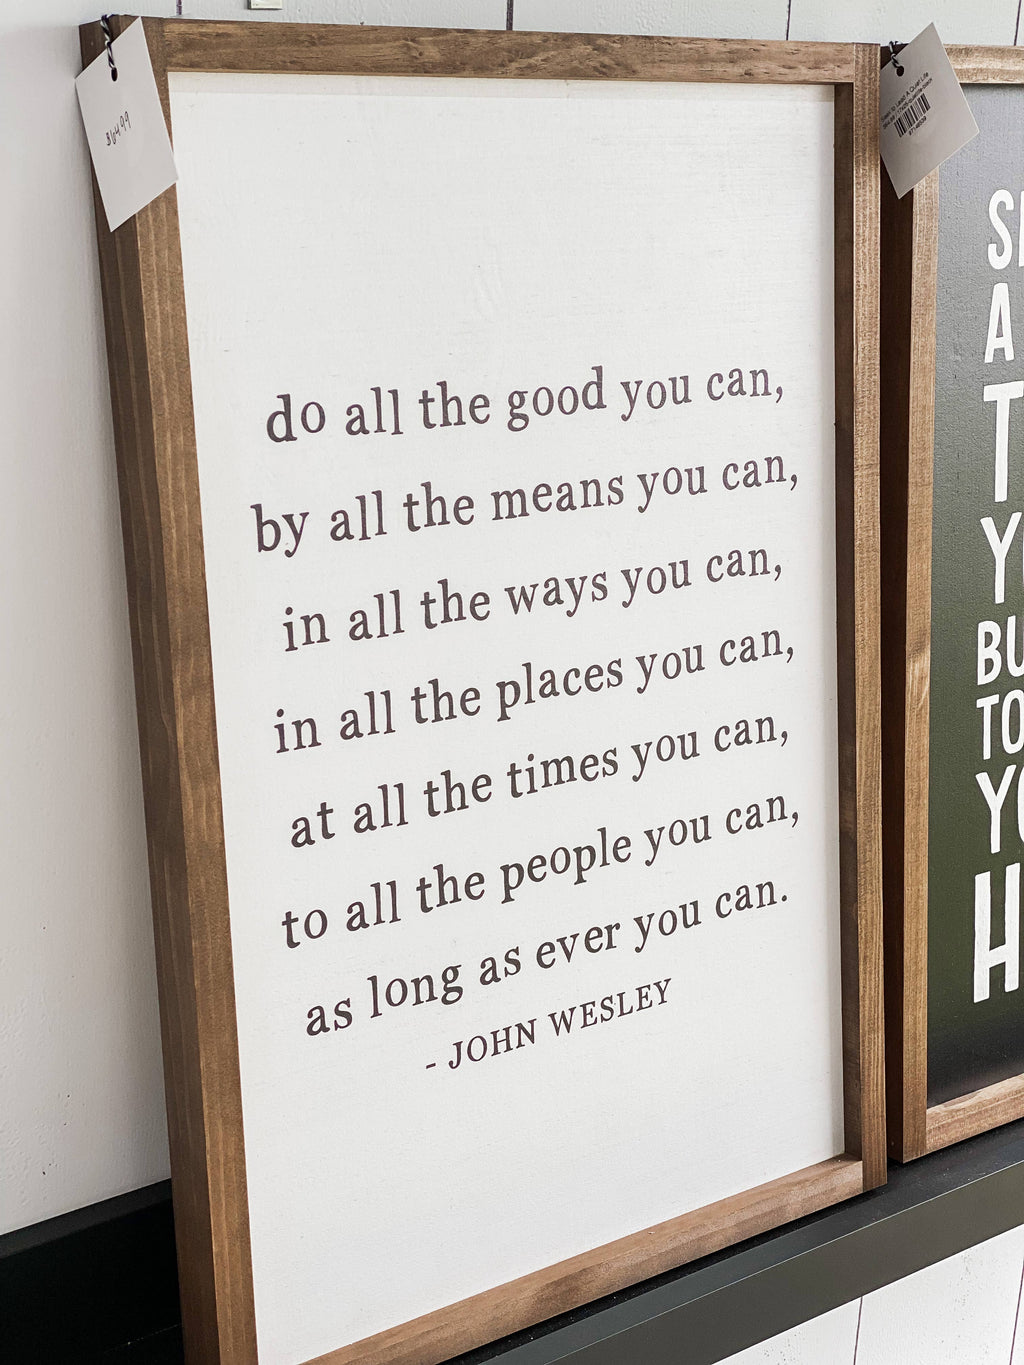 $64.99
do all the good you can,
by all the means you can,
in all the ways you can,
in all the places you can,
at all the times you can,
to all the people you can,
as long as ever you can.
- JOHN WESLEY
A
T
BU
TO
H